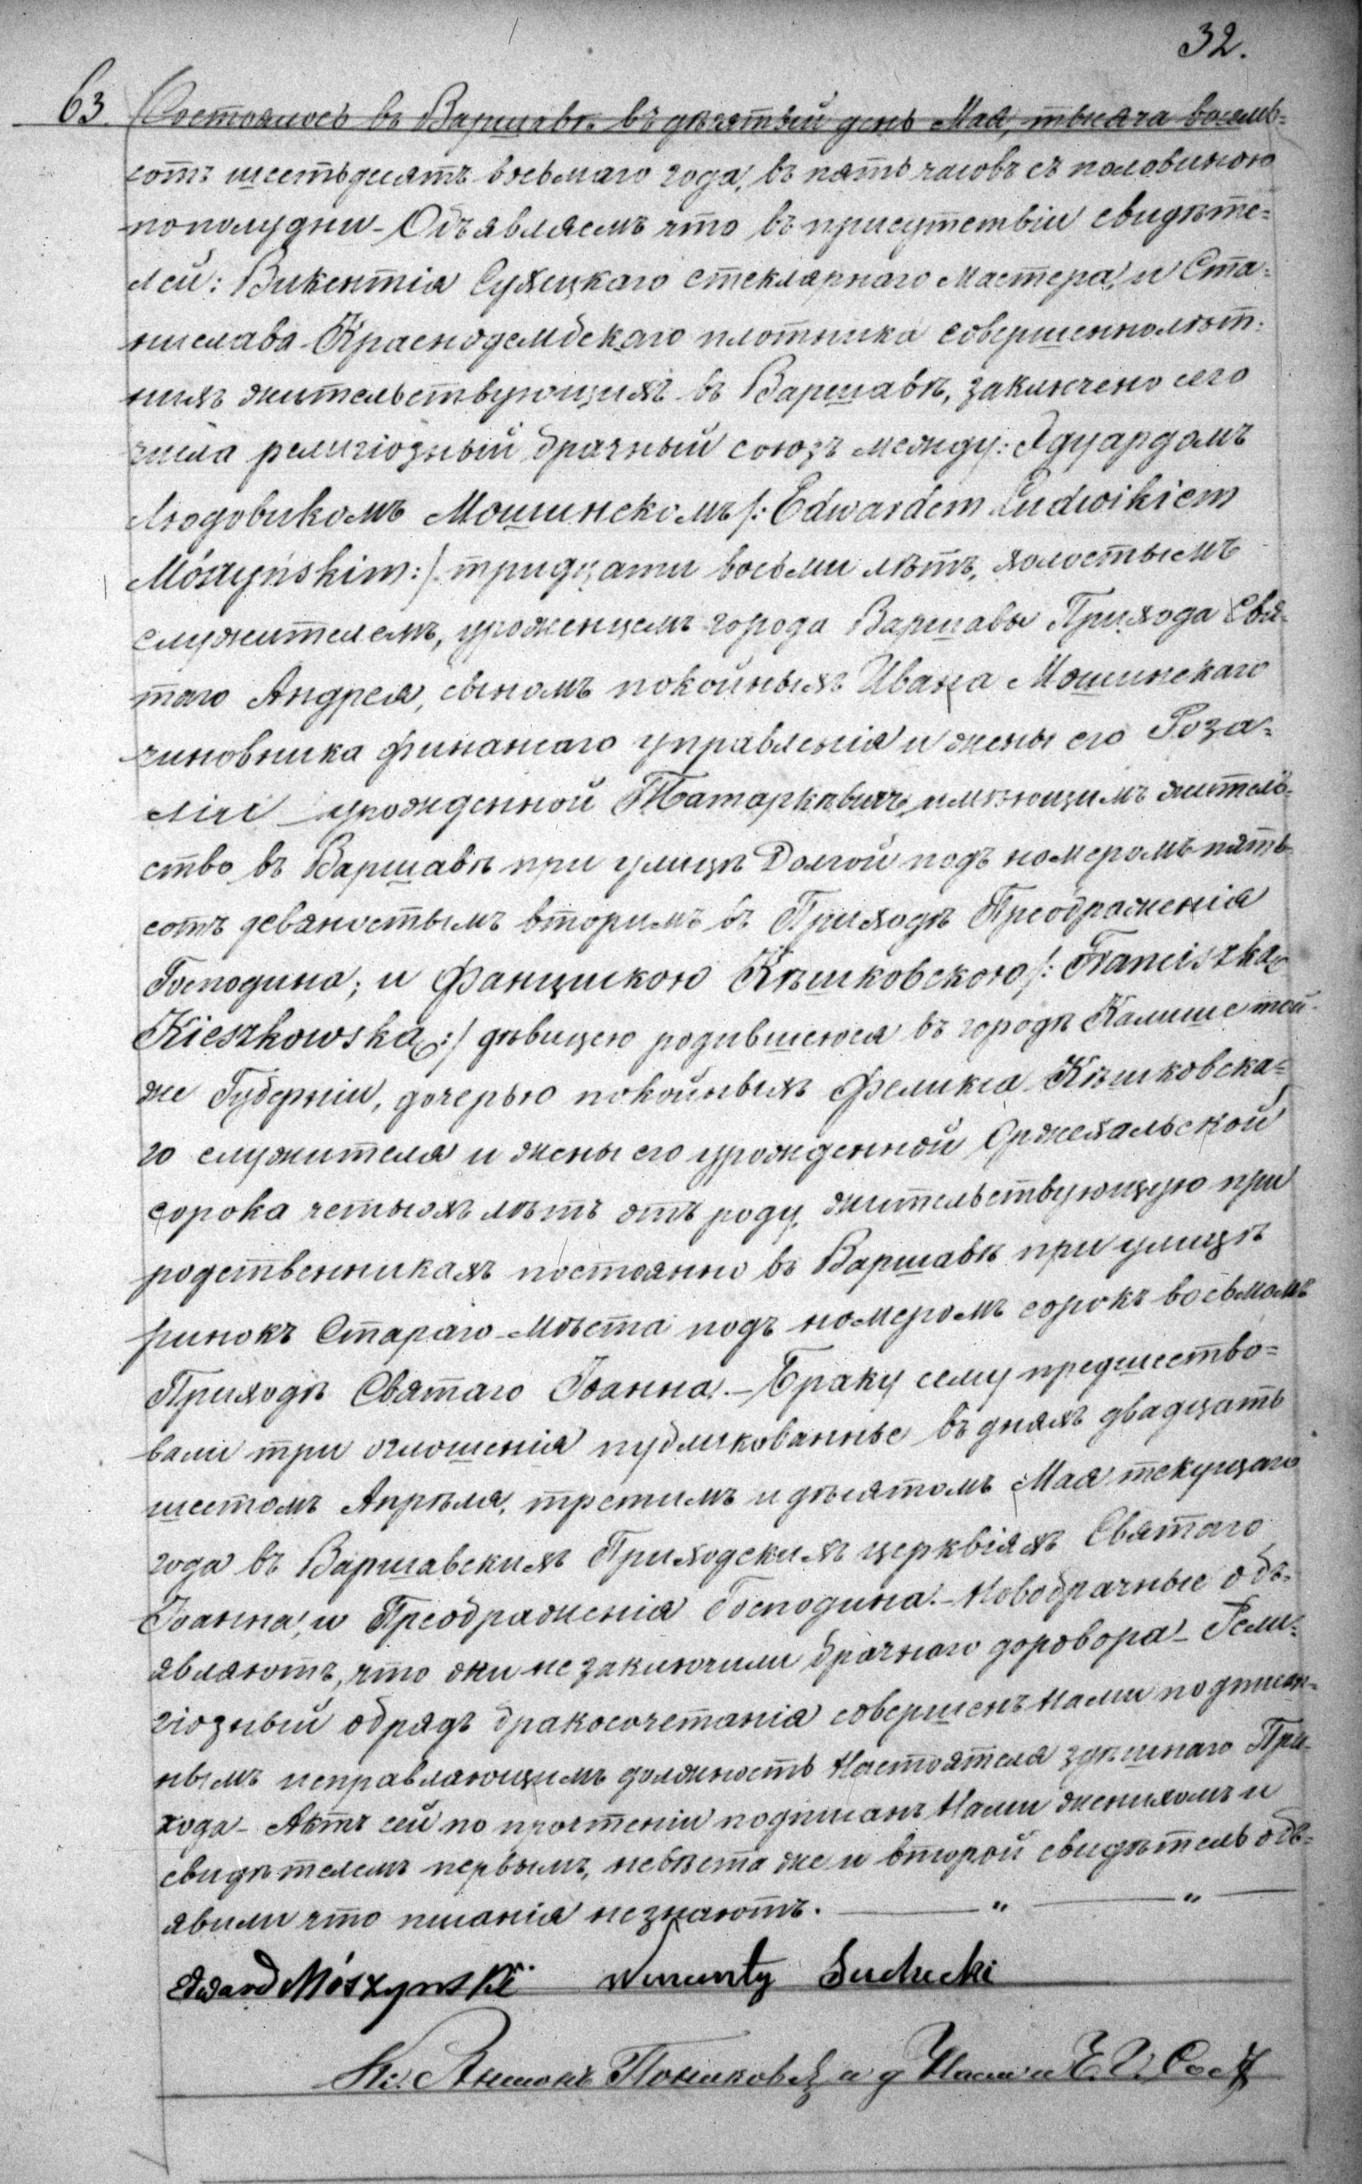 32.
63. Состоялось въ Варшавѣ въ десятый день Мая, тысяча восемь-
сотъ шестьдесятъ восьмаго года, въ пять часовъ съ половиною
пополудни - Объявляемъ что въ присутствіи свидѣте-
лей: Викентія Сухецкаго стеклярнаго мастера, и Ста-
нислава Краснодембскаго плотника совершеннолѣт-
нихъ жительствующихъ въ Варшавѣ, заключено сего
числа религіозный брачный союзъ между: Эдуардомъ
Людовикомъ Мошинскомъ /: Edwardem Ludwikiem
Mószyńskim :/ тридцати восьми лѣтъ, холостымъ
служителемъ, уроженцемъ города Варшавы Прихода Свя-
таго Андрея, сыномъ покойныхъ Ивана Мошинскаго
чиновника финанснаго управленія и жены его Роза-
ліи урожденной Татаркѣвичъ, имѣющимъ житель-
ство въ Варшавѣ при улицѣ Долгой подъ номеромъ пять
сотъ девяностымъ вторимъ въ Приходѣ Преображенія
Господина; и Францишкою Кѣшковскою /: Franciszką
Kieszkowską :/ дѣвицею родившеюся въ городѣ Калише той-
же Губерніи, дочерью покойныхъ Феликса Кѣшковска-
го служителя и жены его урожденной
сорока четырхъ лѣтъ отъ роду, жительствующую при
родственникахъ постоянно въ Варшавѣ при улицѣ
ринокъ Стараго-Мѣста подъ номеромъ сорокъ восьмомъ
Приходѣ Святаго Іоанна. - Браку сему предшество-
вали три оглошенія публикованные въ дняхъ двадцать
шестомъ Апрѣля, третимъ и десятомъ Мая текущаго
года въ Варшавскихъ Приходскихъ церквіяхъ Святаго
Іоанна, и Преображенія Господина. - Новобрачные объ-
являютъ, что они не заключили брачнаго доровора - Рели-
гіозный обрядъ бракосочетанія совершенъ Нами подписан-
нымъ исправляющимъ должность Настоятеля здѣшнаго При-
хода - Актъ сей по прочтеніи подписанъ Нами женихомъ и
свидѣтелемъ первымъ, невѣста же и второй свидѣтель объ-
явили что писанія незнаютъ. — " — " —
Edward Mószyński Wincenty Suchecki
Кс. Антонъ и д Наст